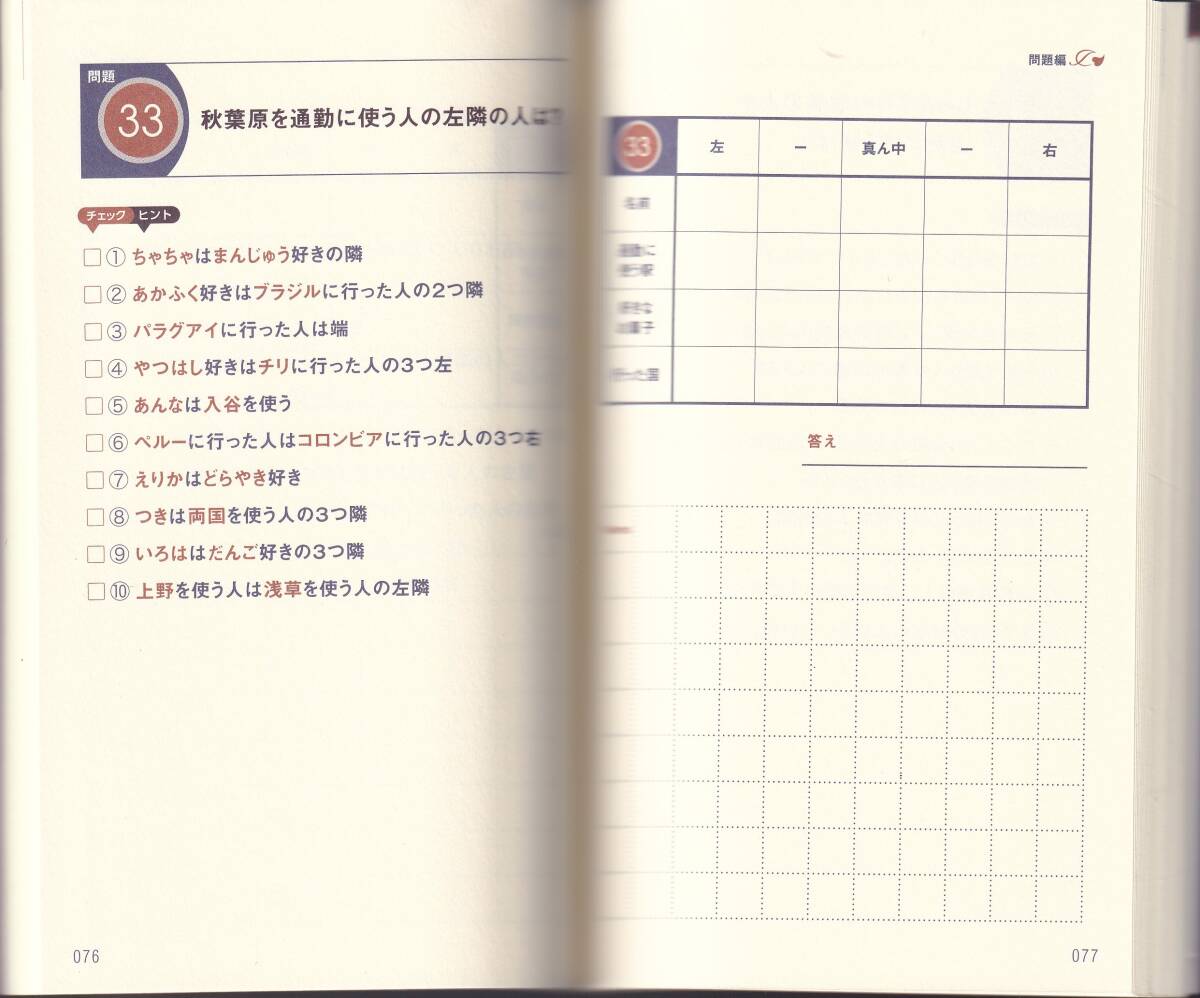 問題
33
秋葉原を通勤に使う人の左隣の人は?
チェック ヒント
□① ちゃちゃはまんじゅう好きの隣
□② あかふく好きはブラジルに行った人の2つ隣
□③ パラグアイに行った人は端
□④ やつはし好きはチリに行った人の3つ左
□⑤ あんなは入谷を使う
□⑥ ペルーに行った人はコロンビアに行った人の3つ右
□⑦ えりかはどらやき好き
□⑧ つきは両国を使う人の3つ隣
□⑨ いろははだんご好きの3つ隣
□⑩ 上野を使う人は浅草を使う人の左隣
076
問題編
33 左 ー 真ん中 ー 右
名前
通勤に
使う駅
好きな
お菓子
行った国
答え
077